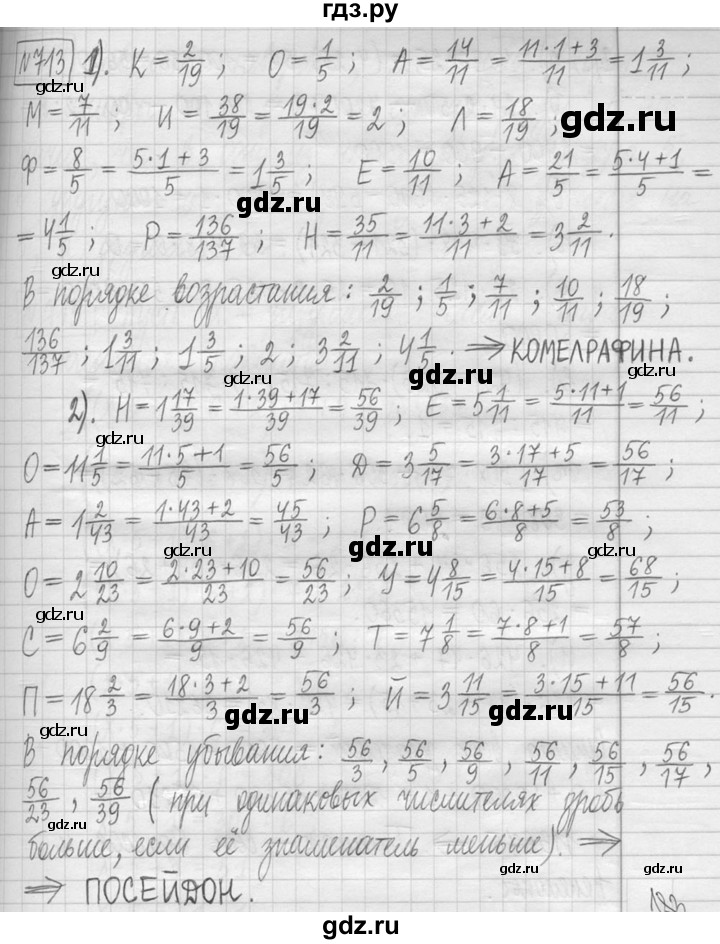 гдз.ру
№713 1). К = 2/19 ; О = 1/5 ; А = 14/11 = (11·1+3)/11 = 1 3/11 ;
М = 7/11 ; И = 38/19 = (19·2)/19 = 2 ; Л = 18/19 ;
Ф = 8/5 = (5·1+3)/5 = 1 3/5 ; Е = 10/11 ; А = 21/5 = (5·4+1)/5 =
= 4 1/5 ; Р = 136/137 ; Н = 35/11 = (11·3+2)/11 = 3 2/11 .
В порядке возрастания: 2/19 ; 1/5 ; 7/11 ; 10/11 ; 18/19 ;
136/137 ; 1 3/11 ; 1 3/5 ; 2 ; 3 2/11 ; 4 1/5 . ⇒ КОМЕЛРАФИНА.
2). Н = 1 17/39 = (1·39+17)/39 = 56/39 ; Е = 5 1/11 = (5·11+1)/11 = 56/11 ;
О = 11 1/5 = (11·5+1)/5 = 56/5 ; Д = 3 5/17 = (3·17+5)/17 = 56/17 ;
А = 1 2/43 = (1·43+2)/43 = 45/43 ; Р = 6 5/8 = (6·8+5)/8 = 53/8 ;
О = 2 10/23 = (2·23+10)/23 = 56/23 ; У = 4 8/15 = (4·15+8)/15 = 68/15 ;
С = 6 2/9 = (6·9+2)/9 = 56/9 ; Т = 7 1/8 = (7·8+1)/8 = 57/8 ;
П = 18 2/3 = (18·3+2)/3 = 56/3 ; Й = 3 11/15 = (3·15+11)/15 = 56/15 .
В порядке убывания: 56/3 , 56/5 , 56/9 , 56/11 , 56/15 , 56/17 ,
56/23 , 56/39 (при одинаковых числителях дробь
больше, если её знаменатель меньше). ⇒
⇒ ПОСЕЙДОН.
gdz.ru